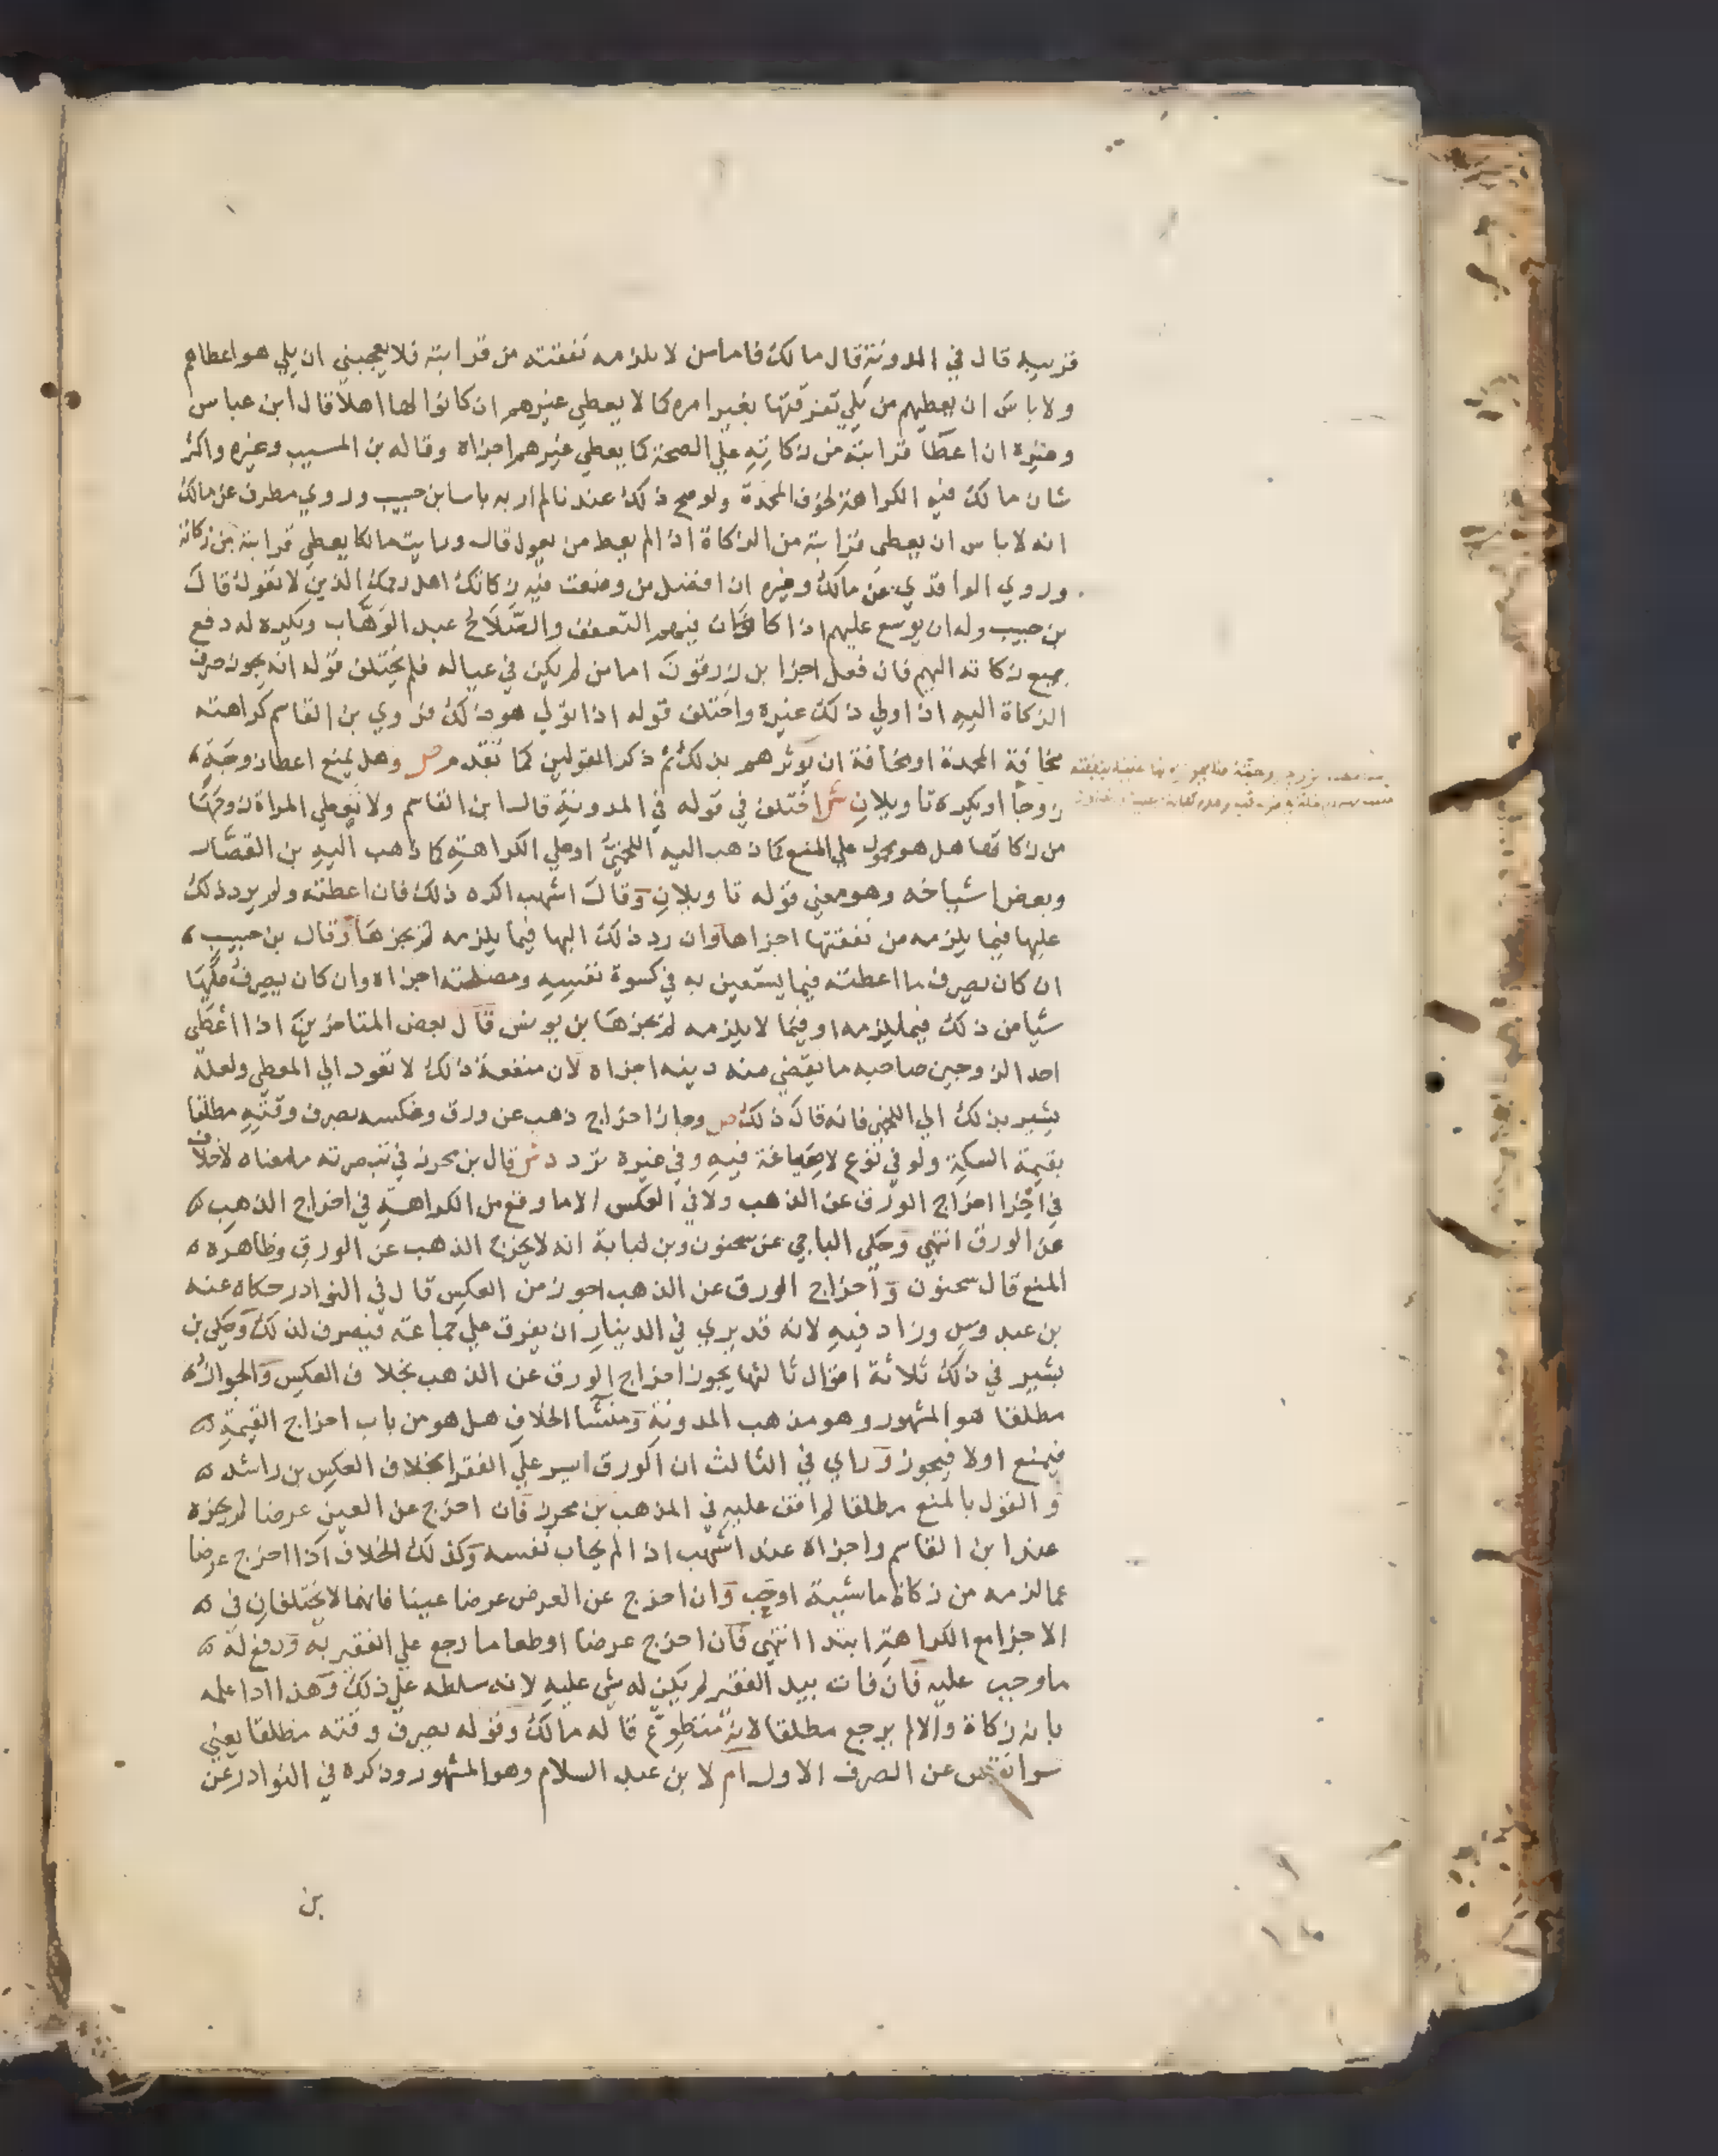 قريبه قال في المدونة قال مالك فاما من لا يلزمه نفقته من قرابته فلا يعجبني ان يلي هو اعطاهم
ولا باس ان يعطيهم من يلي تفرقتها بغير امره كما لا يعطي غيرهم ان كانوا لها اهلا قال ابن عباس
وغيره ان اعطا قرابته من زكاته علي الصحة كما يعطي غيرهم اجزاه وقاله بن المسيب وغيره واكثر
شان مالك فيه الكراهة لخوف المحمدة ولو صح ذلك عندنا لم ار به باسا بن حبيب وروي مطرف عن مالك
انه لا باس ان يعطي قرابته من الزكاة اذا لم يعط من يعول قال ورايت مالكا يعطي قرابته من زكاته
وروي الواقدي عن مالك وغيره ان افضل من وضعت فيه زكاتك اهل رحمك الذين لا تعول قال
بن حبيب وله ان يوسع عليهم اذا كان فيهم التعفف والصلاح عبد الوهاب ويكره له دفع
جميع زكاته اليهم فان فعل اجزا بل زرقون اما من لم يكن في عياله فلم يختلف قوله انه يجوز صرف
الزكاة اليه اذا ولي ذلك غيره واختلف قوله اذا تولي هو ذلك فروي بن القاسم كراهته
مخافة المحمدة او مخافة ان يوثرهم بذلك ثم ذكر القولين كما تقدم ص وهل يمنع اعطا زوجة
زوجا او يكره تاويلان ش اختلف في قوله في المدونة قال ابن القاسم ولا تعطي المراة زوجها
من زكاتها هل هو محمول علي المنع كما ذهب اليه اللخمي او علي الكراهة كما ذهب اليه بن القصار
وبعض اشياخه وهو معني قوله تاويلان وقال اشهب اكره ذلك فان اعطته ولم يرد ذلك
عليها فيما يلزمه من نفقتها اجزاها وان رد ذلك اليها فيما يلزمه لم يجزها وقال بن حبيب
ان كان يصرف ما اعطته فيما يستعين به في كسوة نفسه ومصلحته اجزاه وان كان يصرف عليها
شيا من ذلك فيما يلزمه او فيما لا يلزمه لم يجزها بن يونس قال بعض المتاخرين اذا اعطي
احد الزوجين صاحبه ما يقضي منه دينه اجزاه لان منفعة ذلك لا تعود الي المعطي ولعله
يشير بذلك الي اللخمي فانه قال ذلك ص وجاز اخراج ذهب عن ورق وعكسه بصرف وقته مطلقا
بقيمة السكة ولو في نوع لا صياغة فيه وفي غيره تردد ش قال بن محرز في تبصرته ما معناه لا خلاف
في اجزا اخراج الورق عن الذهب ولا في العكس الا ما وقع من الكراهة في اخراج الذهب
عن الورق انتهي وحكي الباجي عن سحنون وبن لبابة انه لا يخرج الذهب عن الورق وظاهره
المنع قال سحنون واخراج الورق عن الذهب اجوز من العكس قال في النوادر حكاه عنه
بن عبدوس وزاد فيه لانه قد يري في الدينار ان يفرق علي جماعة فيصرف لذلك وحكي بن
بشير في ذلك ثلاثة اقوال ثالثها يجوز اخراج الورق عن الذهب بخلاف العكس والجواز
مطلقا هو المشهور وهو مذهب المدونة ومنشا الخلاف هل هو من باب اخراج القيمة
فيمنع اولا فيجوز وراي في الثالث ان الورق ايسر علي الفقرا بخلاف العكس بن راشد
والقول بالمنع مطلقا لم اقف عليه في المذهب بن محرز فان اخرج عن العين عرضا لم يجزه
عند ابن القاسم واجزاه عند اشهب اذا لم يحاب نفسه وكذلك الخلاف اذا اخرج عرضا
عما لزمه من زكاة ماشية او حب وان اخرج عن العرض عرضا عينا فانهما لا يختلفان في
الاجزا مع الكراهة ابتدا انتهي فان اخرج عرضا او طعاما رجع علي الفقير به ودفع له
ما وجب عليه فان فات بيد الفقير لم يكن له شي عليه لانه سلطه علي ذلك وهذا اذا اعلمه
بانه زكاة والا لم يرجع مطلقا لانه متطوع قاله مالك وقوله بصرف وقته مطلقا يعني
سوا نقص عن الصرف الاول ام لا بن عبد السلام وهو المشهور وذكره في النوادر عن
بن